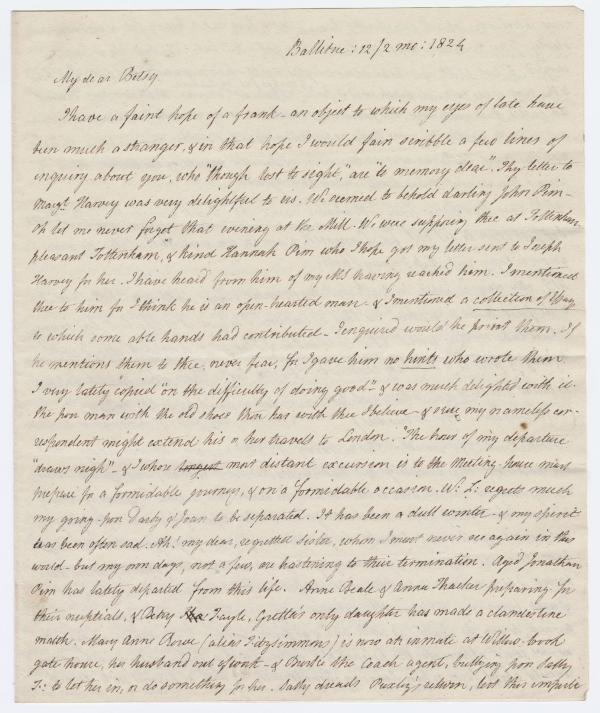 Ballitore: 12/2 mo: 1824
My dear Betsy
I have a faint hope of a frank - an object to which my eyes of late have
been much a stranger, & in that hope I would fain scribble a few lines of
inquiry about you, who "though lost to sight," are "to memory dear". Thy letter to
Margt. Harvey was very delightful to us. We seemed to behold darling John Pim -
Oh let me never forget that evening at the Mill. We were supposing thee at Tottenham
pleasant Tottenham, & kind Hannah Pim who I hope got my letter sent to Joseph
Harvey for her. I have heard from him of my MS having reached him. I mentioned
thee to him for I think he is an open-hearted man - & I mentioned a collection of Essays
to which some able hands had contributed - I enquired would he print them. If
he mentions them to thee, never fear, for I gave him no hints who wrote them.
I very lately copied "on the difficulty of doing good" - & was much delighted with it.
the poor man with the old shoes thou has with thee I believe - & my nameless cor-
respondent might extend his or her travels to London. "The hour of my departure
"draws nigh" - & I whose longest most distant excursion is to the Meeting-house must
prepare for a formidable journey, & on a formidable occasion. W: L: regrets much
my going - poor Darby & Joan to be separated. It has been a dull winter - & my spirit
has been often sad. Ah! my dear, regretted sister, whom I must never see again in this
world - but my own days, not a few, are hastening to their termination. Aged Jonathan
Pim has lately departed from this life. Anne Beale & Anna Thacker preparing for
their nuptials, & Betsy Fayle, Gretta's only daughter has made a clandestine
match. Mary Anne (alias Fitzsimmons) is now an inmate at Willow-brook
gate house, her husband out of work - & the Coach agent, bullying poor Sally
F: to let her in, or do something for her. Sally dreads return, lest this